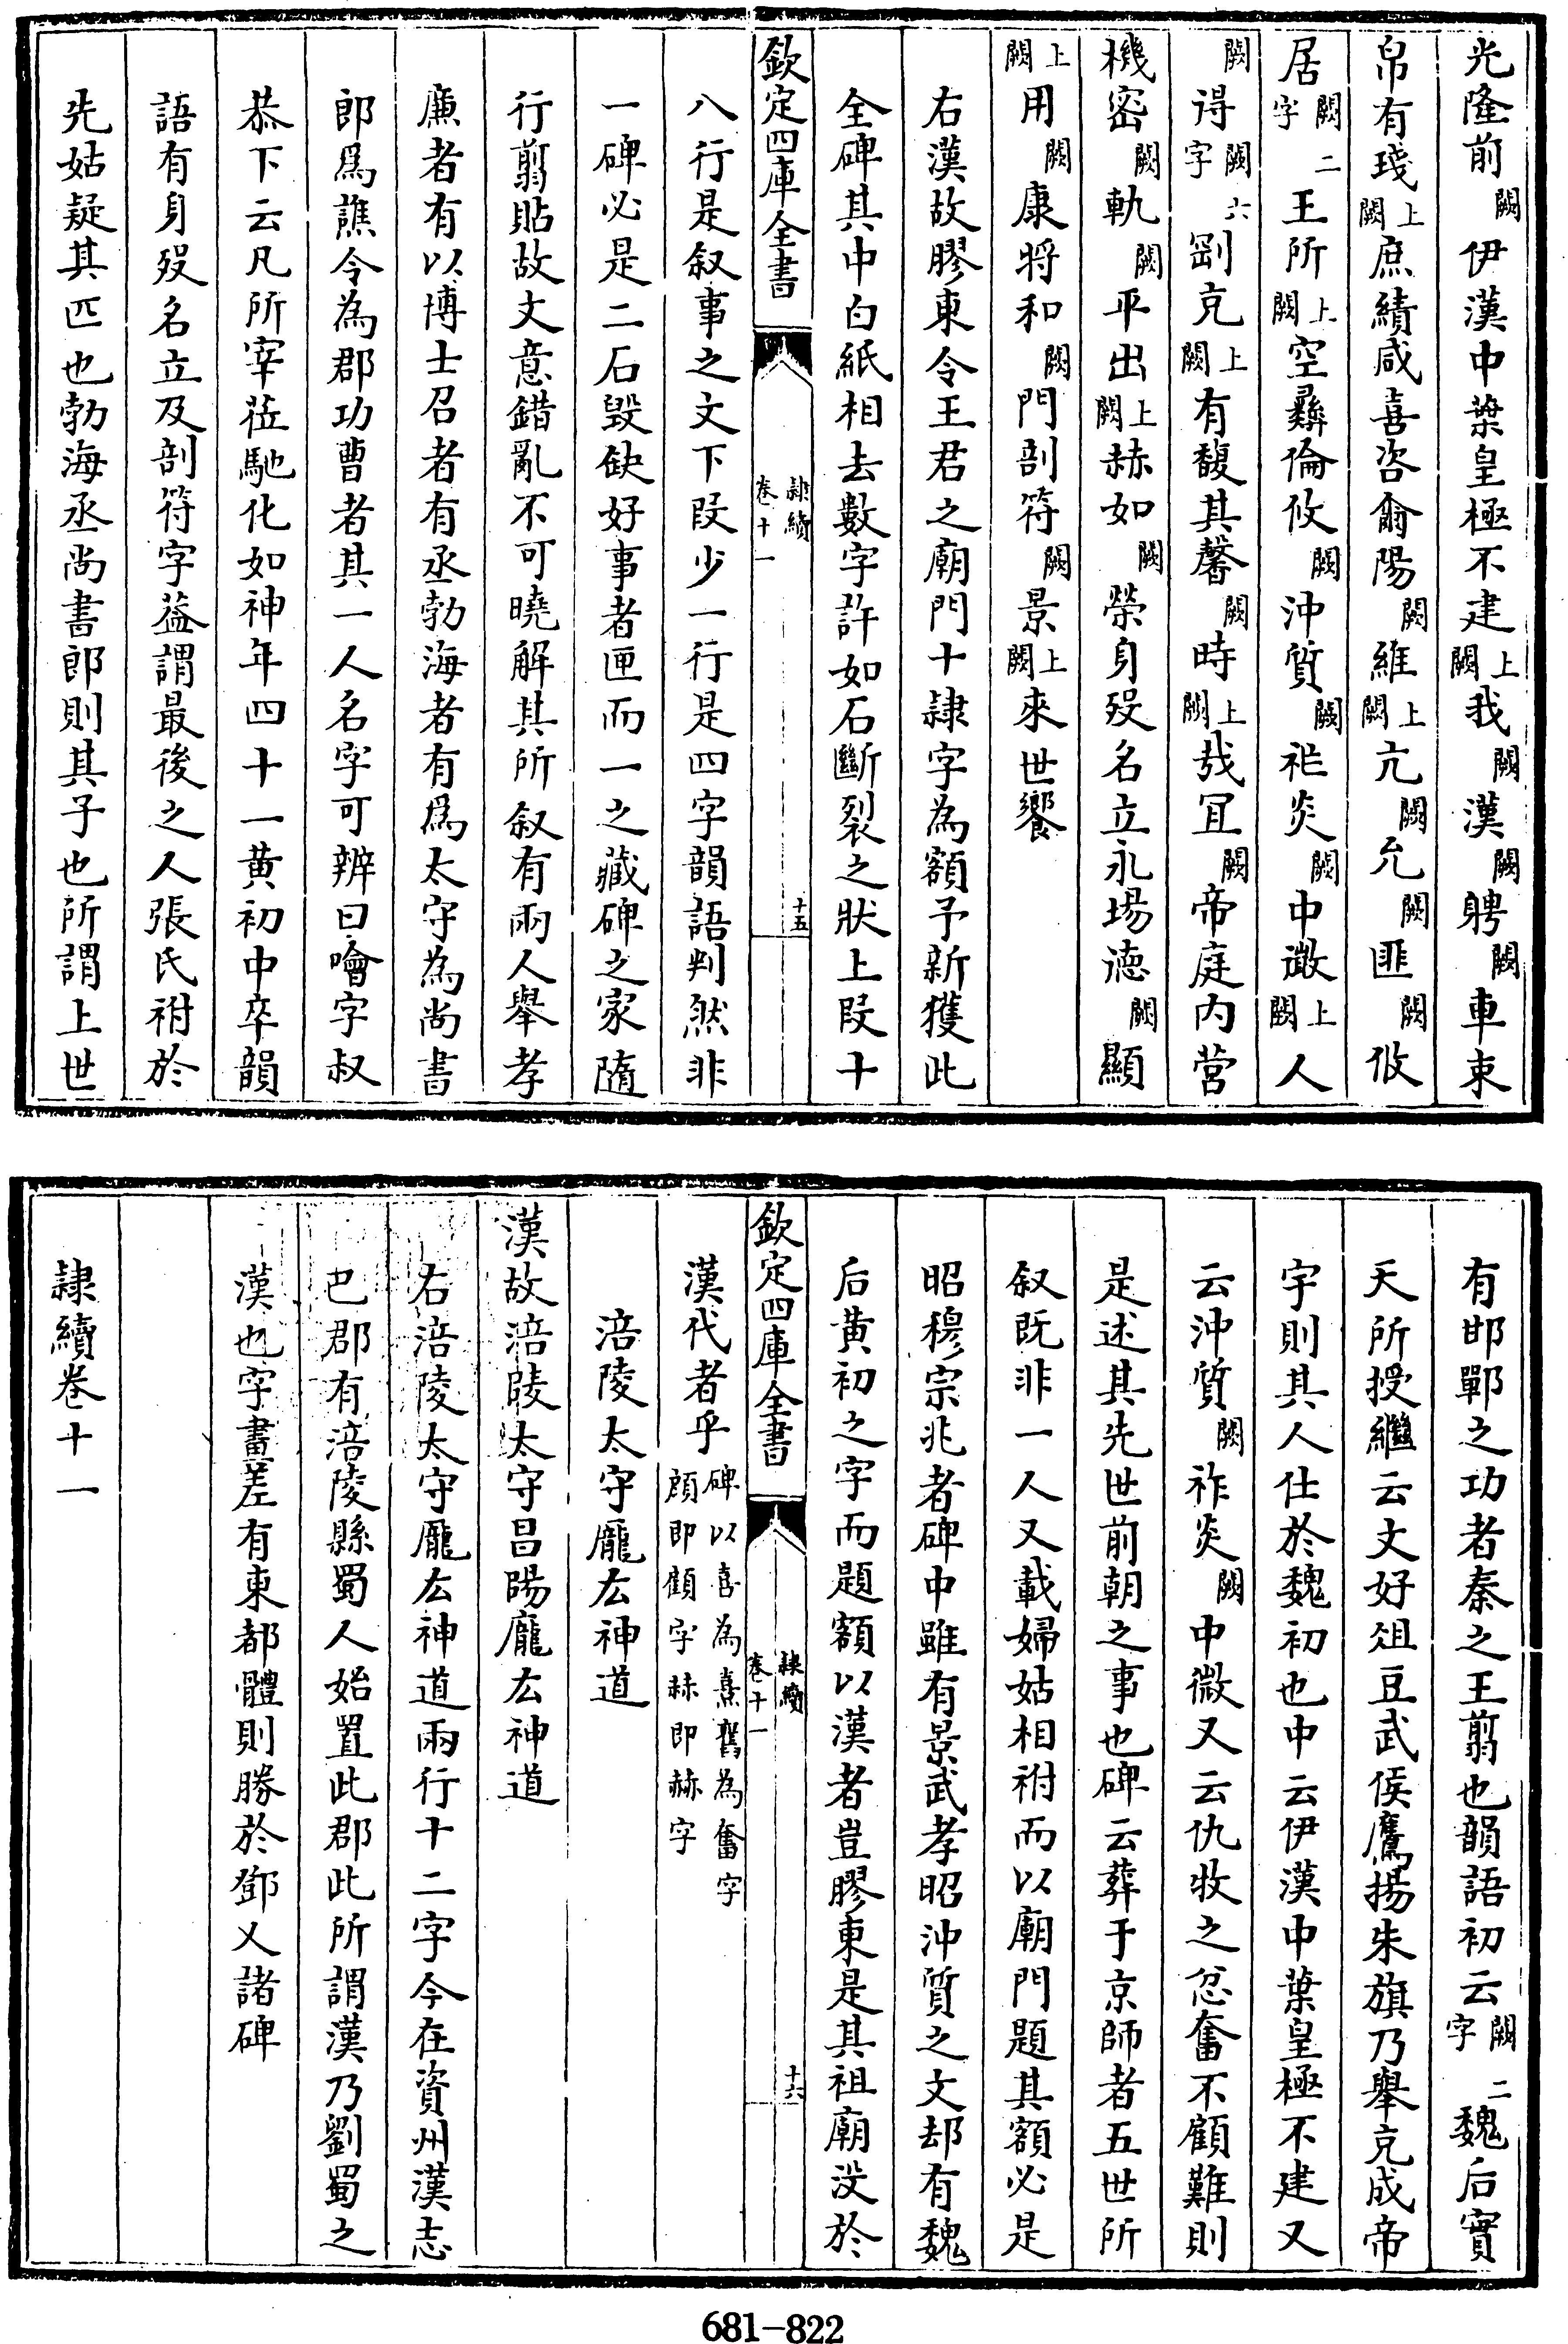 光隆前闕伊漢中葉皇極不建上闕我闕漢闕聘闕車束
帛有琖上闕庶績咸喜咨龠陽闕維上闕亢闕允闕匪闕攸
居闕二字王所上闕空彝倫攸闕沖質闕祚炎闕中微上闕人
闕得闕六字剛克上闕有馥其馨闕時上闕哉宜闕帝庭内營
機密闕軌闕平出上闕赫如闕榮身歿名立永場德闕顯
上闕用闕康將和闕門剖符闕景上闕來世饗
右漢故膠東令王君之廟門十隸字為額予新獲此
全碑其中白紙相去數字許如石斷裂之狀上段十
欽定四庫全書
隸續
卷十一
十五
八行是叙事之文下段少一行是四字韻語判然非
一碑必是二石毀缺好事者匣而一之藏碑之家隨
行翦貼故文意錯亂不可曉解其所叙有兩人舉孝
廉者有以博士召者有丞勃海者有爲太守為尚書
郎爲譙令為郡功曹者其一人名字可辨曰噲字叔
恭下云凡所宰莅馳化如神年四十一黄初中卒韻
語有身歿名立及剖符字葢謂最後之人張氏祔於
先姑疑其匹也勃海丞尚書郎則其子也所謂上世
有邯鄲之功者秦之王翦也韻語初云闕二字魏后實
天所授繼云文好俎豆武侯鷹揚朱旗乃舉克成帝
宇則其人仕於魏初也中云伊漢中葉皇極不建又
云沖質闕祚炎闕中微又云仇牧之忿奮不顧難則
是述其先世前朝之事也碑云葬于京師者五世所
叙既非一人又載婦姑相祔而以廟門題其額必是
昭穆宗兆者碑中雖有景武孝昭沖質之文却有魏
后黄初之字而題額以漢者豈膠東是其祖廟没於
欽定四庫全書
隸續
卷十一
十六
漢代者乎碑以喜為熹舊為奮字顔即顧字赫即赫字
涪陵太守龐厷神道
漢故涪陵太守昌陽龐厷神道
右涪陵太守龐厷神道兩行十二字今在資州漢志
巴郡有涪陵縣蜀人始置此郡此所謂漢乃劉蜀之
漢也字畫差有東都體則勝於鄧乂諸碑
隸續卷十一
681-822